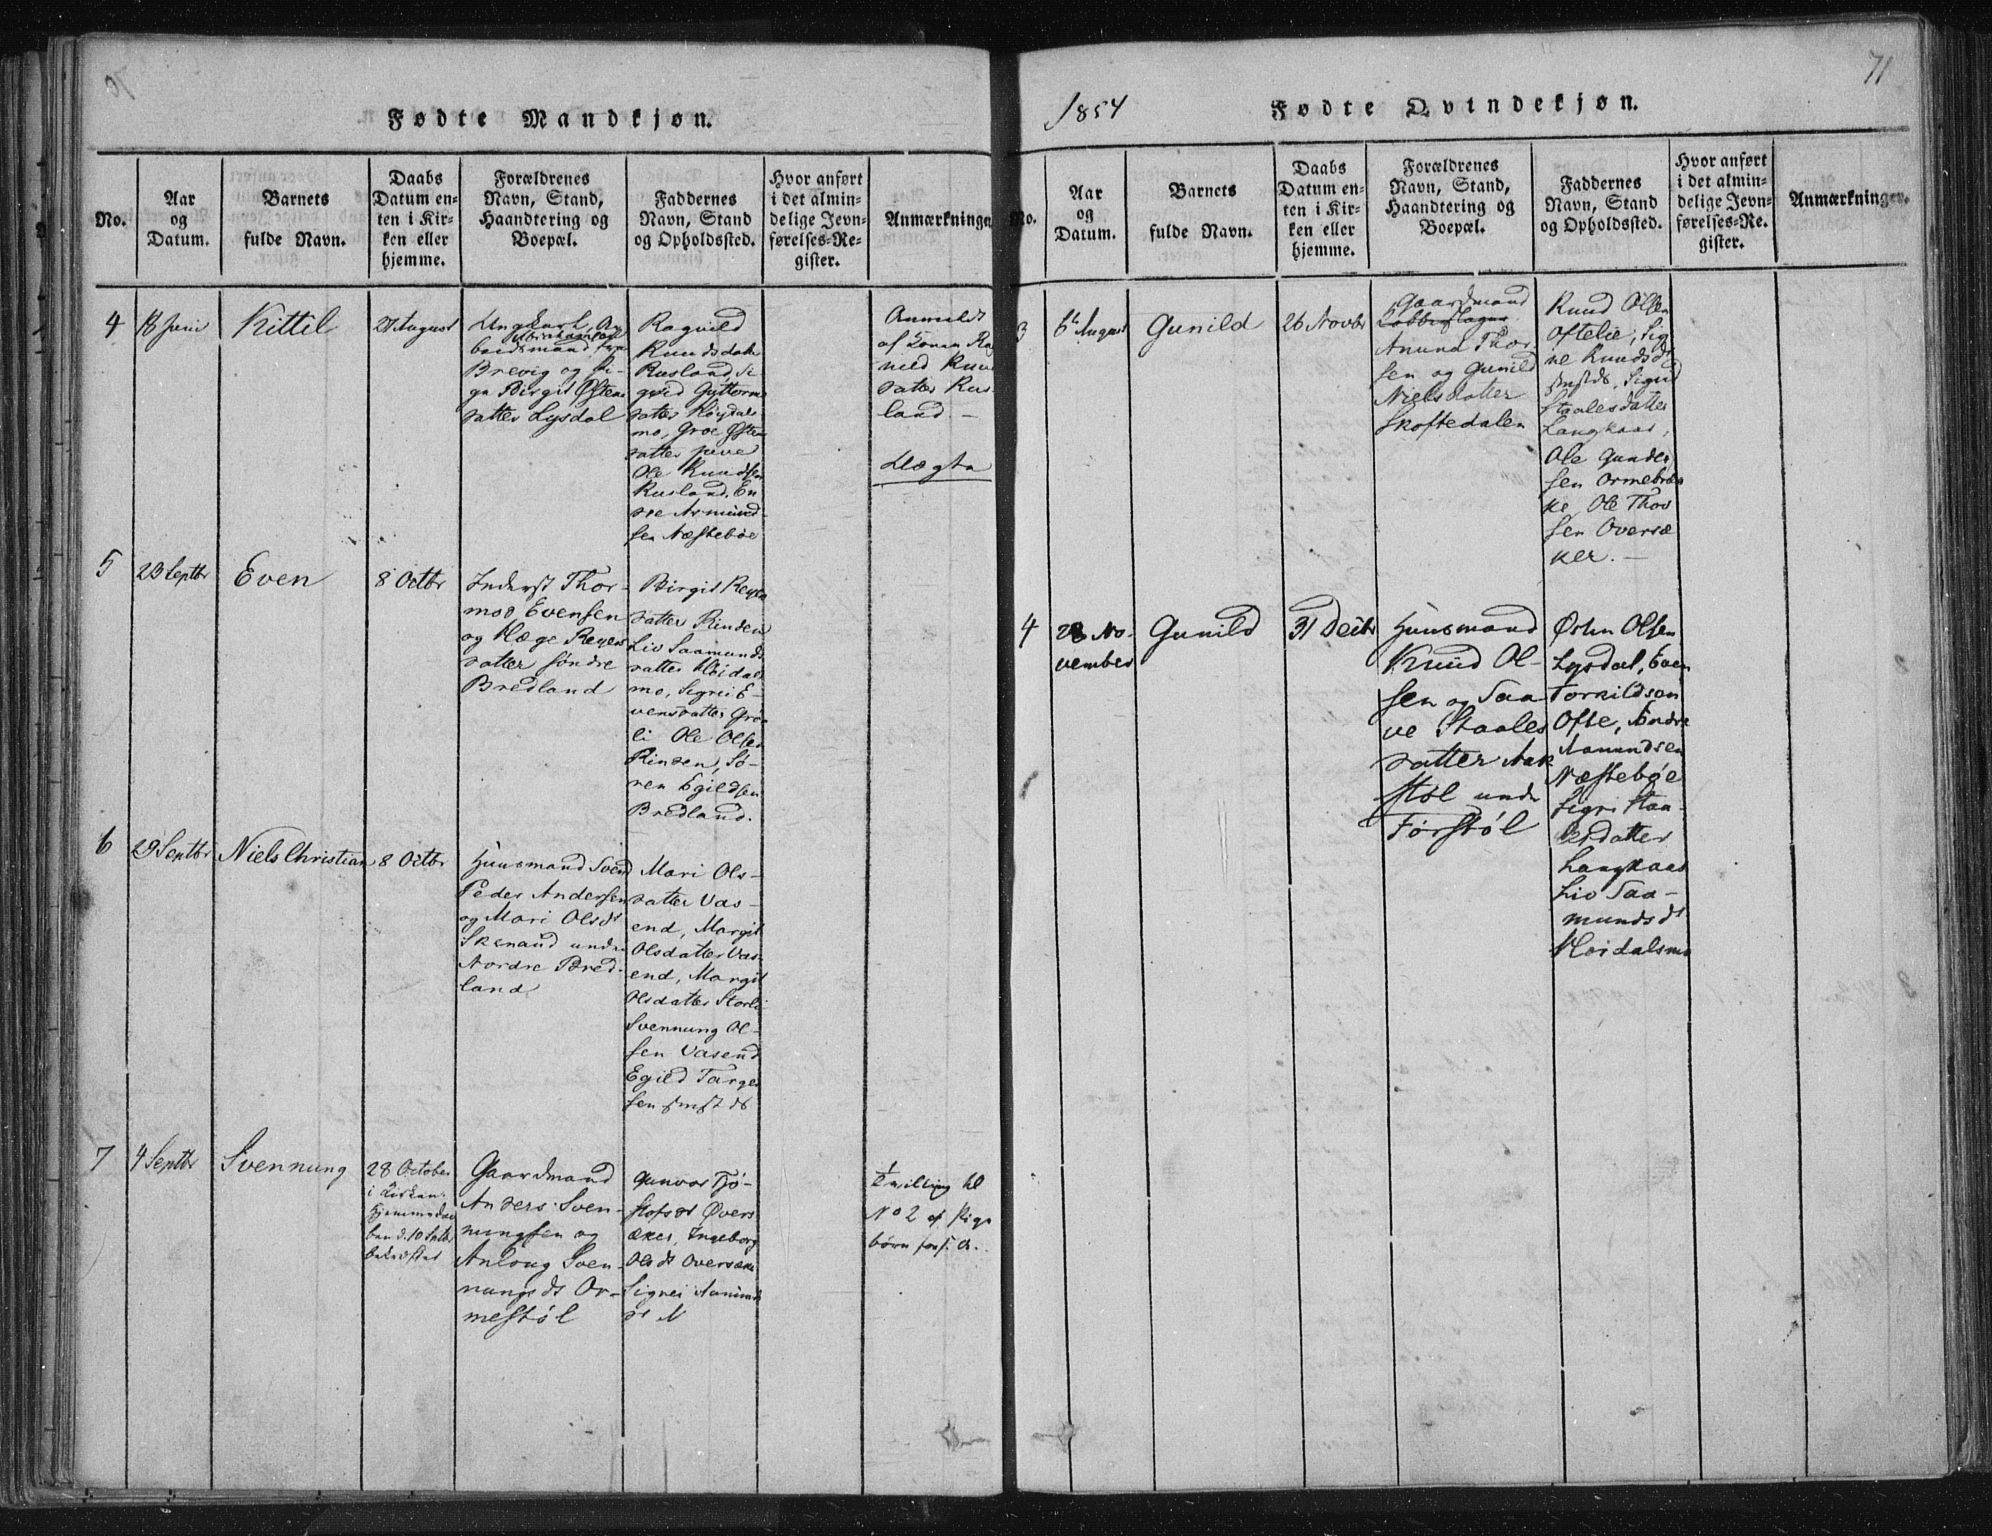 70
Fødte Mandkjøn.
No.
Aar
og
Datum.
Barnets
fulde Navn.
Daabs
Datum en-
ten i Kir-
ken eller
hjemme.
Forældrenes
Navn, Stand,
Haandtering og
Boepæl.
Faddernes
Navn, Stand
og Opholdssted.
Hvor anført
i det almin-
delige Jevn-
førelses-Re-
gister.
Anmærkninger
4
18 Juni
Kittil
27 August
Ungkarl, Ar-
beidsmand
Brevig og Pi-
ge Birgit Østens
datter Lysdal
Ragnild
Knudsdatter
Rusland, Si-
gred Guttorms
datter Høydals
mo, Groe Østens
datter
Ole Knudsen
Rusland, En
dre Asmund-
sen Næstebøe
Anmeldt
af Konen Rag
nild Knuds
datter Rus
land –
Uægta
5
23 Septbr
Even
8 Octbr
Inderst Thor-
mod Evensen
og Hæge Reyers
datter søndre
Bredland
Birgit Reyers
datter Rinden
Liv Saamunds
datter Høidals
mo, Sigrei E-
vensdatter Grø
li Ole Olsen
Rinden, Sø-
ren Egildsen
Bredland.
6
29 Septbr
Niels Christian
8 Octbr
Huusmand Svend
Peder Andersen
og Mari Olsdt
Skenaud under
Nordre Bred-
land
Mari Ols-
datter Vas-
end, Margit
Olsdatter Vas
end, Margit
Olsdatter Storli
Svennung Ol-
sen Vasend
Egild Targe
sen smstds
7
4 Septbr
Svennung
28 October
i Kirken
Hjemmedaa
ben d. 10 Septbr
bekræftet
Gaardmand
Anders Sven-
nungsen og
Anlaug Sven-
nungsdt Or-
mestøl
Gunvor Tjø-
stofsdt Overs
æker, Ingeborg
Olsdt Oversæker
Sigrei Aamunds
dt N
Tvilling til
No 2 af Pige
børn
1854
Fødte Qvindekjøn.
71
No.
Aar
og
Datum.
Barnets
fulde Navn.
Daabs
Datum en-
ten i Kir-
ken eller
hjemme.
Forældrenes
Navn, Stand,
Haandtering og
Boepæl.
Faddernes
Navn, Stand
og Opholdssted.
Hvor anført
i det almin-
delige Jevn-
førelses-Re-
gister.
Anmærkninger.
3
6te August
Gunild
26 Novbr
Gaardmand
Kobberslager
Anund Thor
sen og Gunild
Nielsdatter
Skoftedalen
Knud Olsen
Oftelie, Sig
ne Knudsdt
smstds, Sigrid
Staalesdatter
Langkaas,
Ole Gunder
sen Ormebræk
ke, Ole Thor
sen Oversæ
ker. –
4
28 No-
vember
Gunild
31 Decbr
Huusmand
Knud Ol-
sen og Saa
ve Staales
datter Aak
støl under
Førstøl
Østen Olsen
Lysdal, Even
Torkildsen
Ofte, Andre
Aamundsen
Næstebøe
Sigri Staa-
lesdatter
Langkaas
Liv Saa-
mundsdt
Høidalsmo